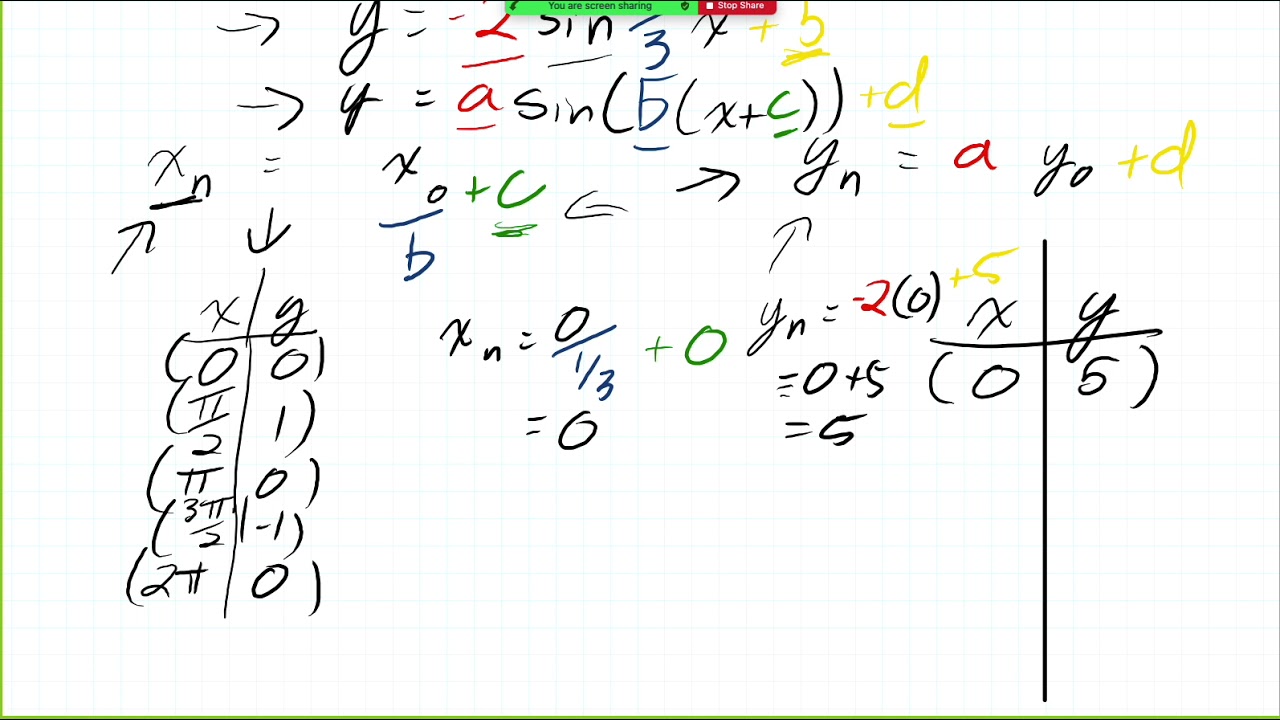 You are screen sharing Stop Share
→ y = -2 sin 1/3 x + 5
→ y = a sin(b(x+c)) + d
xₙ = x₀/b + c ⇐ → yₙ = a y₀ + d
x | y
(0 | 0)
(π/2 | 1)
(π | 0)
(3π/2 | -1)
(2π | 0)
xₙ = 0/(1/3) + 0
= 0
yₙ = -2(0) + 5
= 0+5
= 5
x | y
(0 | 5)